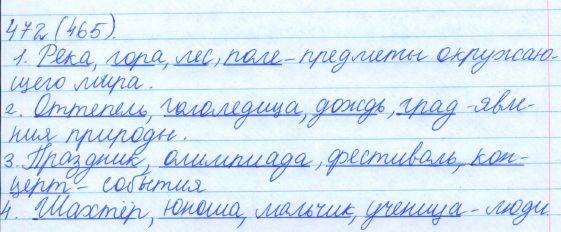 472 (465).
1. Река, гора, лес, поле – предметы окружаю-
щего мира.
2. Оттепель, гололедица, дождь, град – явле-
ния природы.
3. Праздник, олимпиада, фестиваль, кон-
церт – события
4. Шахтёр, юноша, мальчик, ученица – люди.